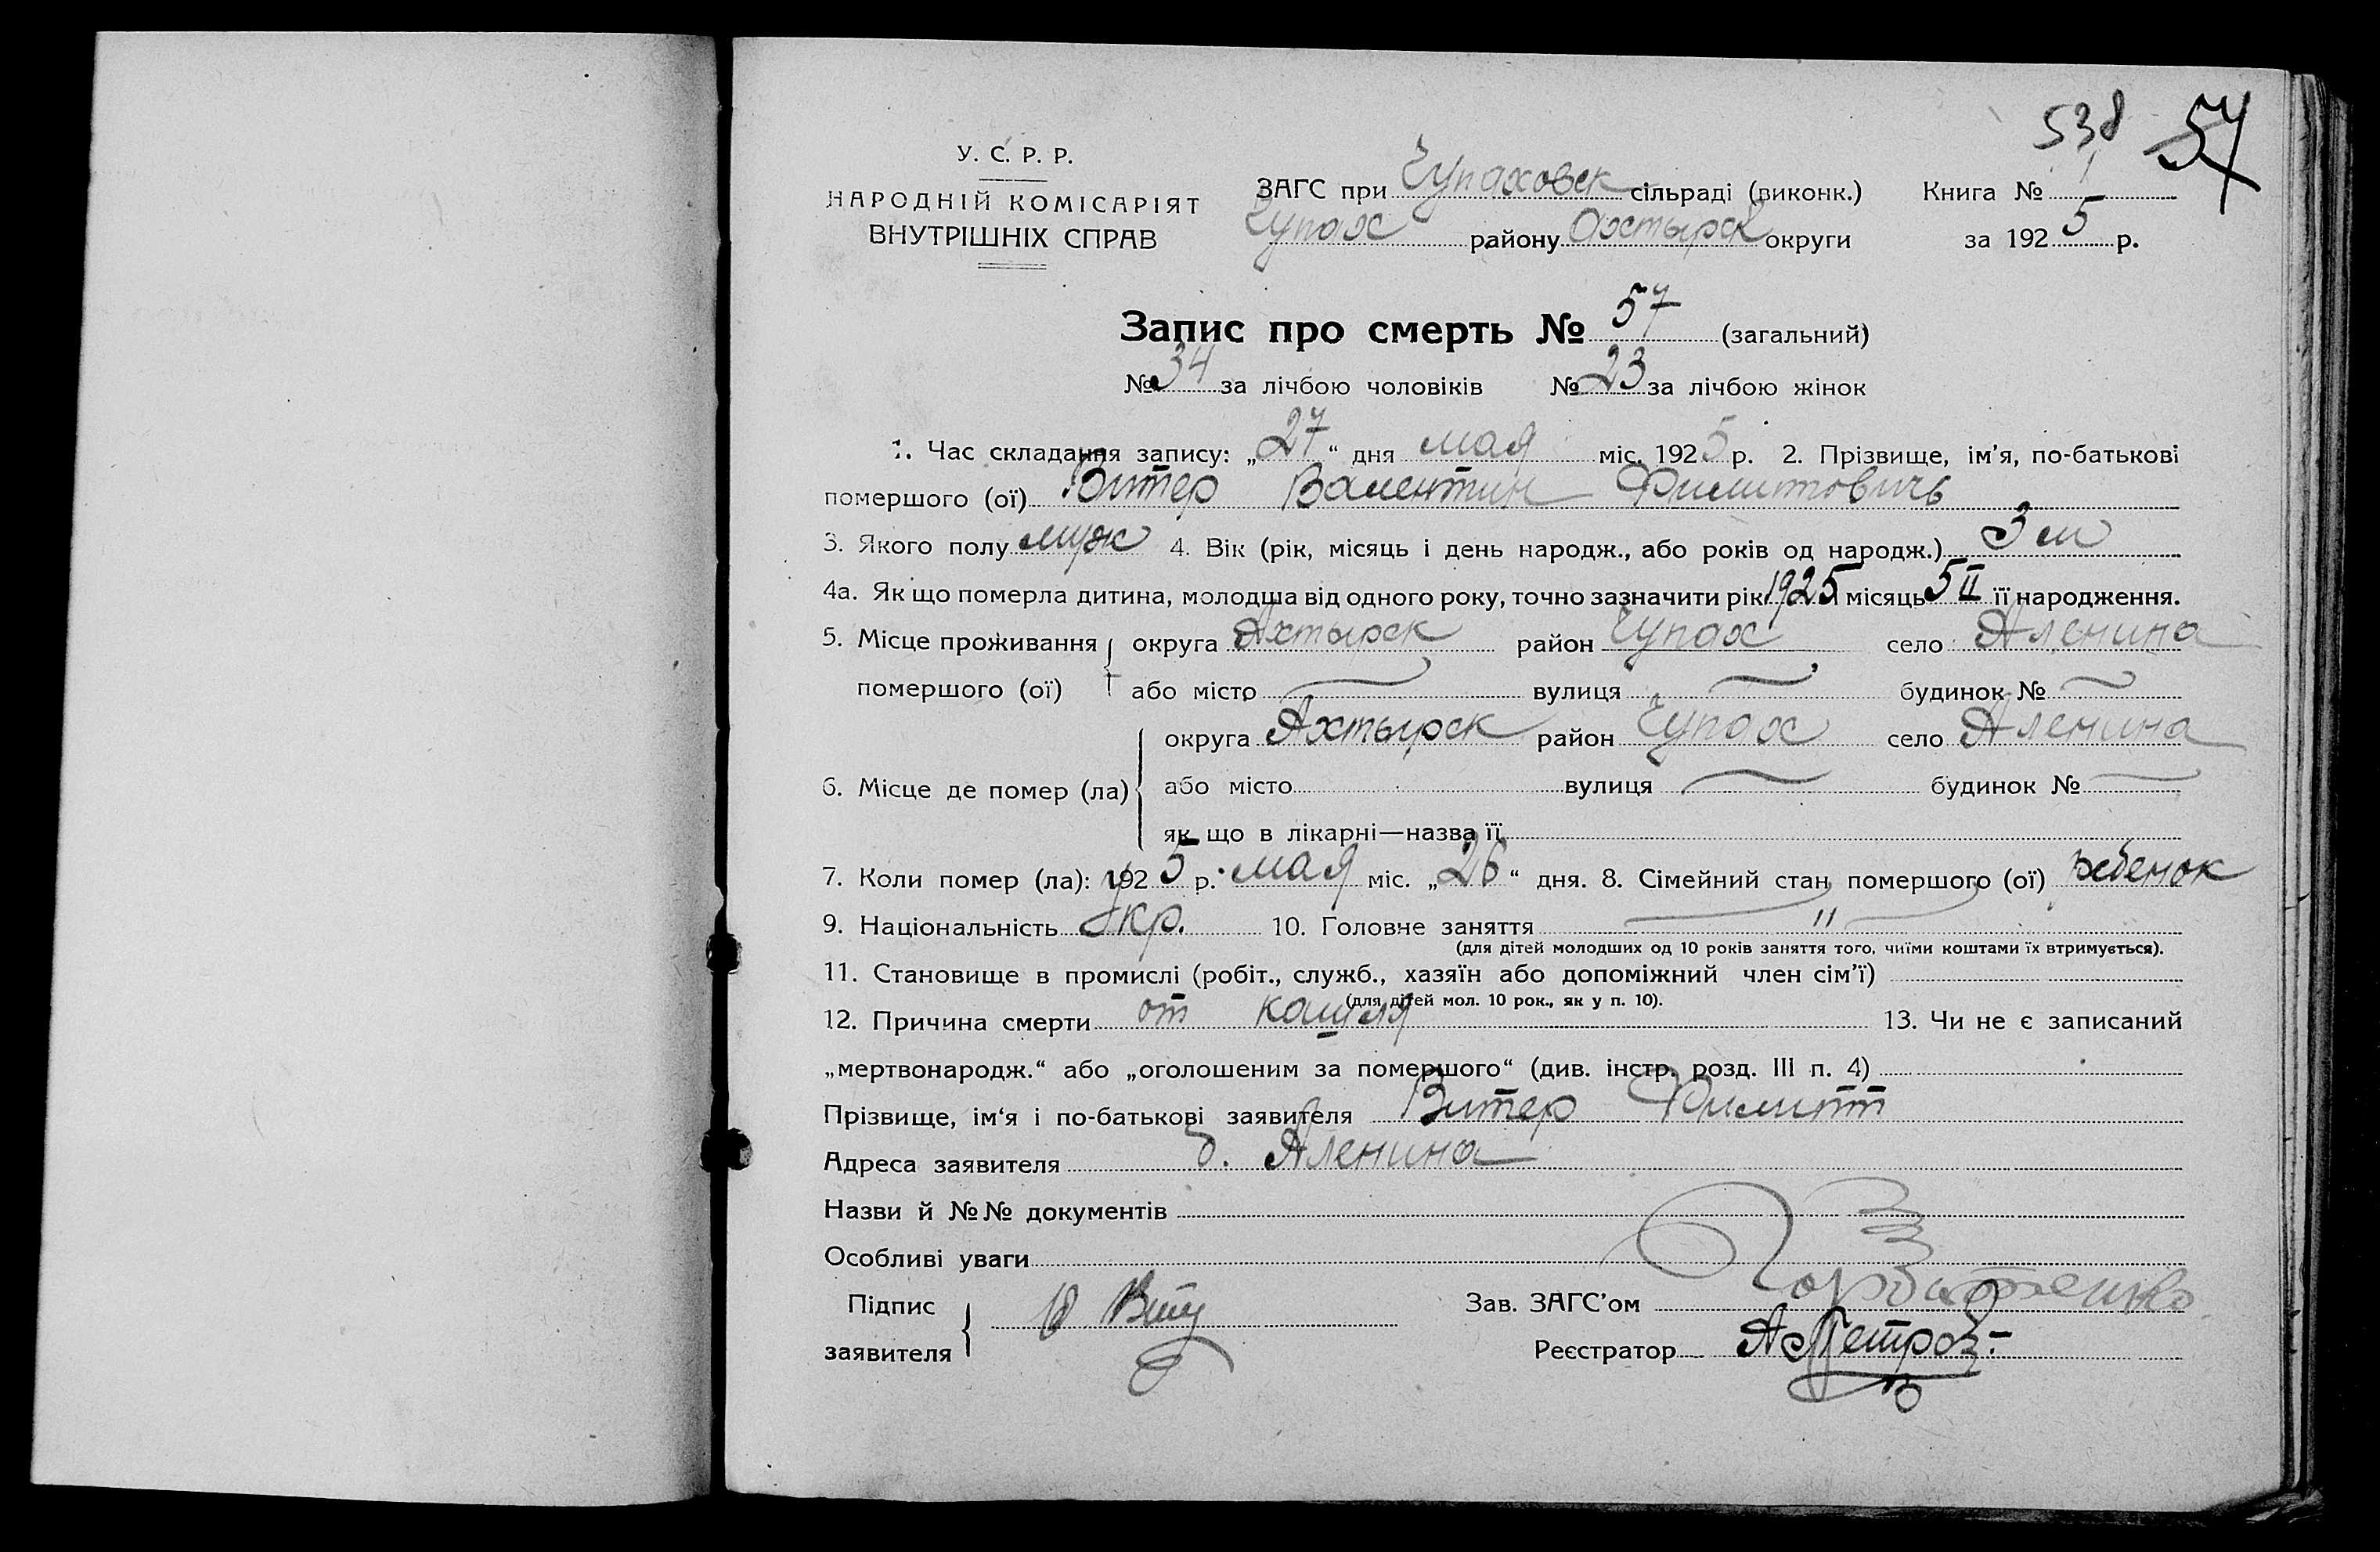 538 57
У. С. Р. Р.
НАРОДНІЙ КОМІСАРІЯТ
ВНУТРІШНІХ СПРАВ
ЗАГС при Чупаховск сільраді (виконк.) Книга № 1
Чупах району Ахтырск округи за 1925 р.
Запис про смерть № 57 (загальний)
№ 34 за лічбою чоловіків № 23 за лічбою жінок
1. Час складання запису: „27“ дня мая міс. 1925 р. 2. Прізвище, ім’я, по-батькові
помершого (ої) Витер Валентин Филиповичь
3. Якого полу муж 4. Вік (рік, місяць і день народж., або років од народж.) 3 м
4а. Як що померла дитина, молодша від одного року, точно зазначити рік 1925 місяць 5 II її народження.
5. Місце проживання округа Ахтырск район Чупах село Аленина
помершого (ої) або місто вулиця будинок №
округа Ахтырск район Чупах село Аленина
6. Місце де помер (ла) або місто вулиця будинок №
як що в лікарні—назва її
7. Коли помер (ла): 1925 р. мая міс. „26“ дня. 8. Сімейний стан помершого (ої) ребенок
9. Національність Укр. 10. Головне заняття "
(для дітей молодших од 10 років заняття того, чиїми коштами їх втримується).
11. Становище в промислі (робіт., служб., хазяїн або допоміжний член сім’ї)
(для дітей мол. 10 рок., як у п. 10).
12. Причина смерти от кашля 13. Чи не є записаний
„мертвонародж.“ або „оголошеним за помершого“ (див. інстр. розд. III п. 4)
Прізвище, ім‘я і по-батькові заявителя Витер Филипп
Адреса заявителя Аленина
Назви й №№ документів
Особливі уваги
Підпис
Зав. ЗАГС’ом Горбатенко
заявителя
Реєстратор Петров